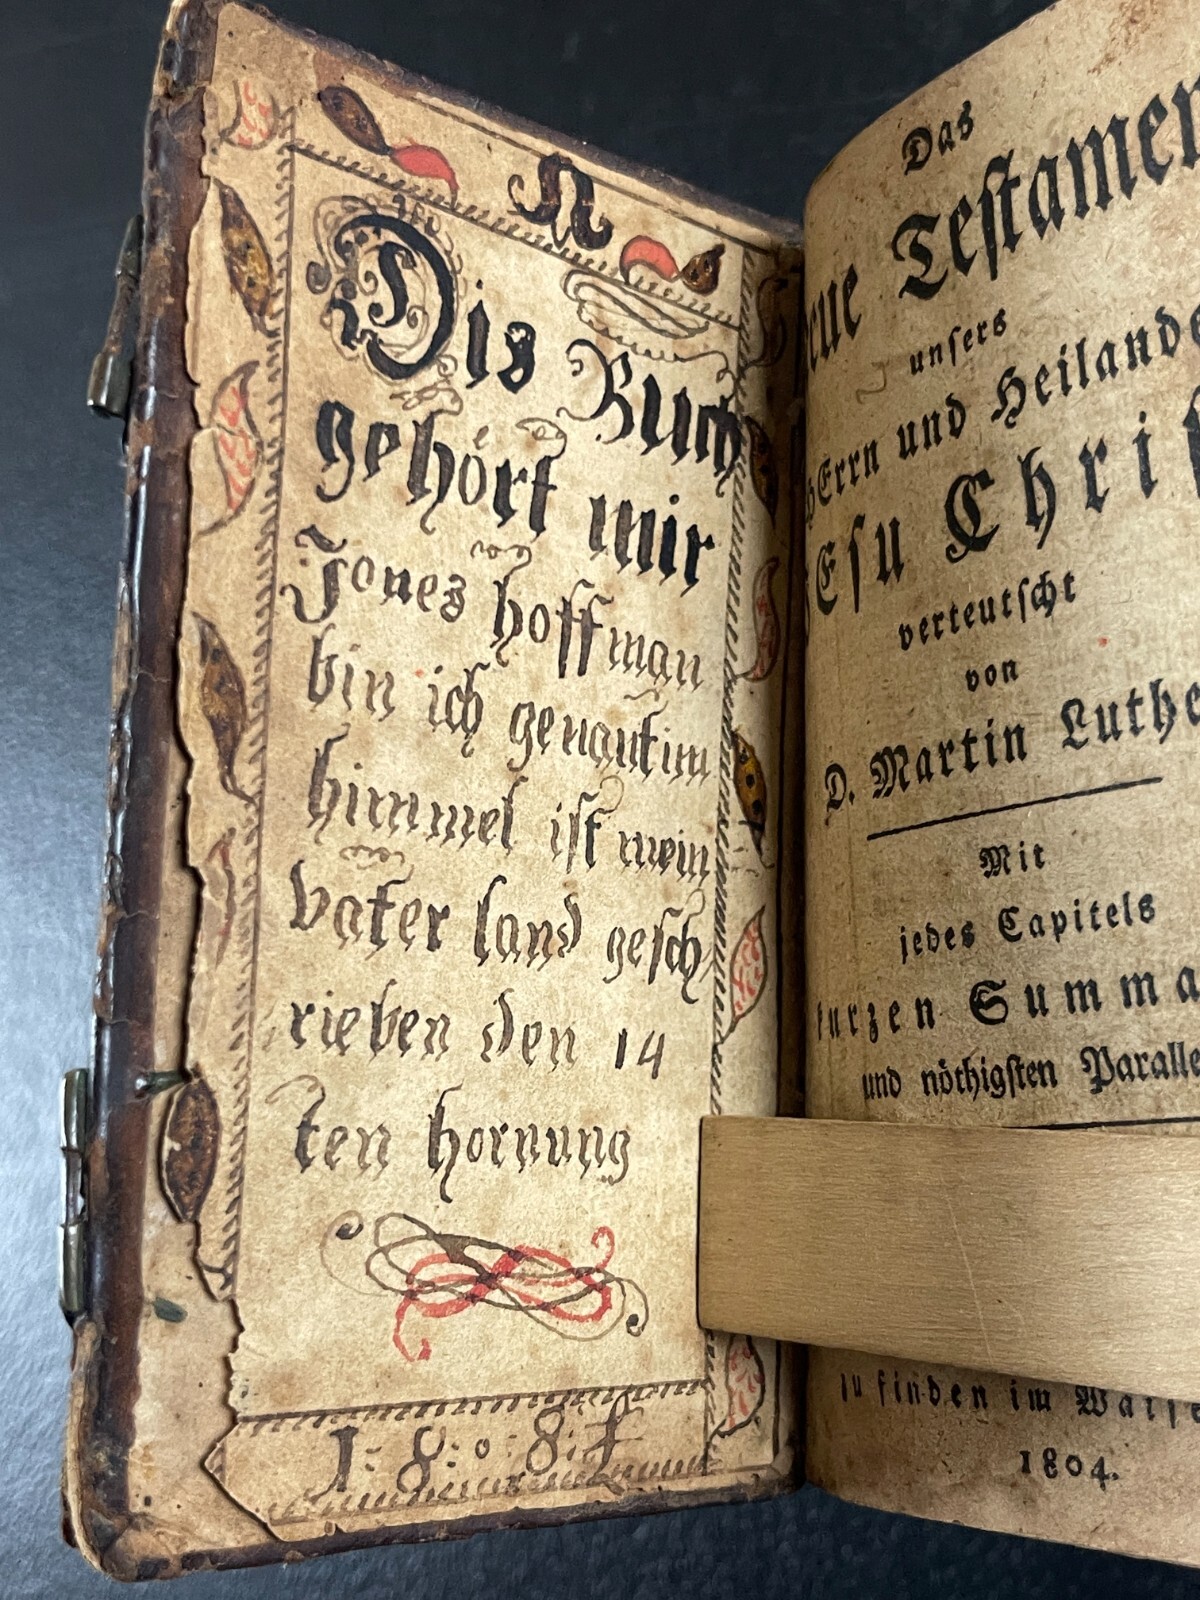 N
Dis Buch
gehört mir
Jones hoffman
bin ich genant im
himmel ist mein
Vater land gesch
rieben den 14
ten hornung
1 = 8 : 0 : 8 :
Das
eue Testamen
unsers
hErrn und Heilands
JEsu Chris
verteutscht
von
D. Martin Luthe
Mit
jedes Capitels
kurzen Summa
und nöthigsten Paralle
zu finden im Waise
1804.